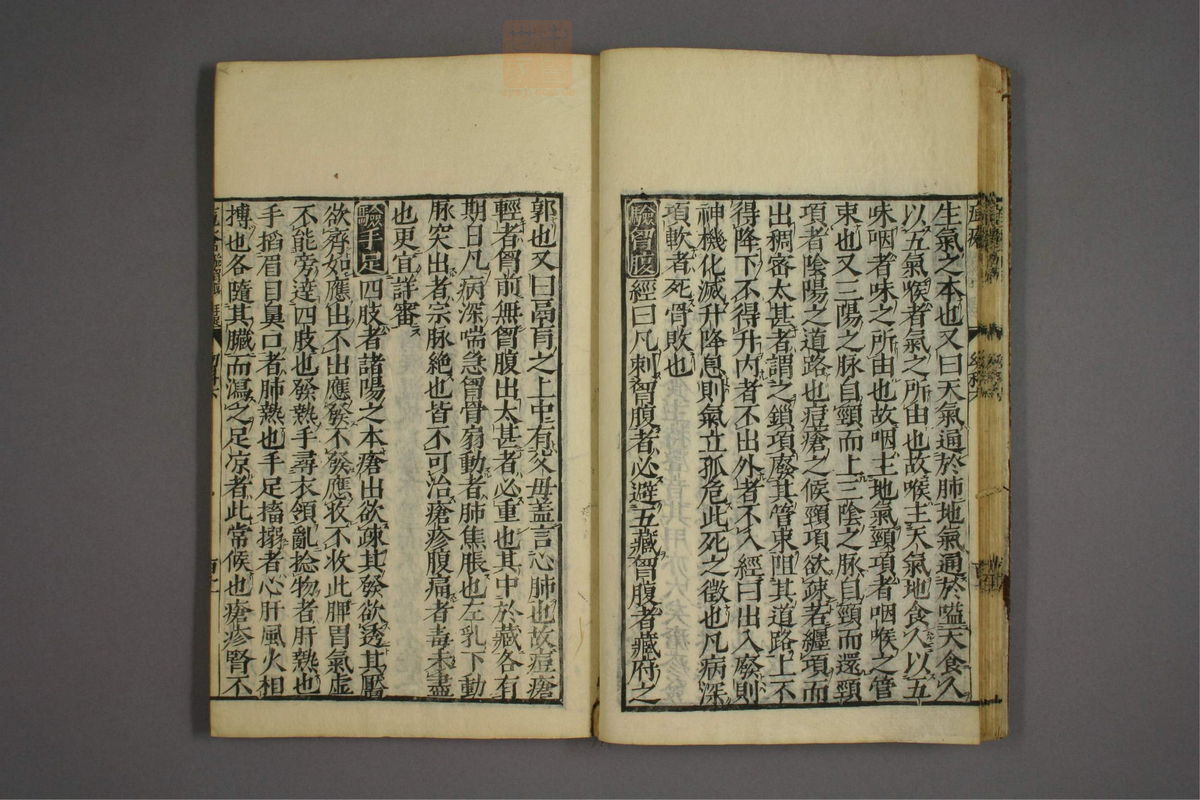 生氣之本也又曰天氣通於肺地氣通於嗌天食人
以五氣喉者氣之所由也故喉主天氣地食人以五
味咽者味之所由也故咽主地氣頸項者咽喉之管
束也又三陽之脉自頸而上三陰之脉自頸而還頸
項者陰陽之道路也痘瘡之候頸項欲疎若纏項而
出稠密太甚者謂之鎖項廢其管束阻其道路上不
得降下不得升内者不出外者不入經曰出入廢則
神機化滅升降息則氣立孤危此死之徵也凡病深
項軟者死骨敗也
驗胷腹經曰凡刺胷腹者必避五藏胷腹者藏府之
郭也又曰鬲肓之上中有父母盖言心肺也故痘瘡
輕者胷前無胷腹出太甚者必重也其中於藏各有
期日凡病深喘急胷骨扇動者肺焦脹也左乳下動
脉突出者宗脉絶也皆不可治瘡疹腹痛者毒未盡
也更宜詳審
驗手足四肢者諸陽之本瘡出欲疎其發欲透其靨
欲齊如應出不出應發不發應收不收此脾胃氣虚
不能旁達四肢也發熱手尋衣領亂捻物者肝熱也
手搯眉目鼻口者肺熱也手足搐搦者心肝風火相
搏也各隨其臓而瀉之足凉者此常候也瘡疹腎不